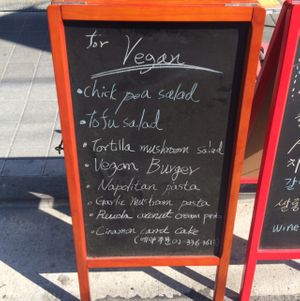 for Vegan
• Chick pea salad
• Tofu salad
• Tortilla mushroom salad
• Vegan Burger
• Napolitan pasta
• Garlic mushroom pasta
• Rucola coconut cream
• Cinamon carrot cake
wine